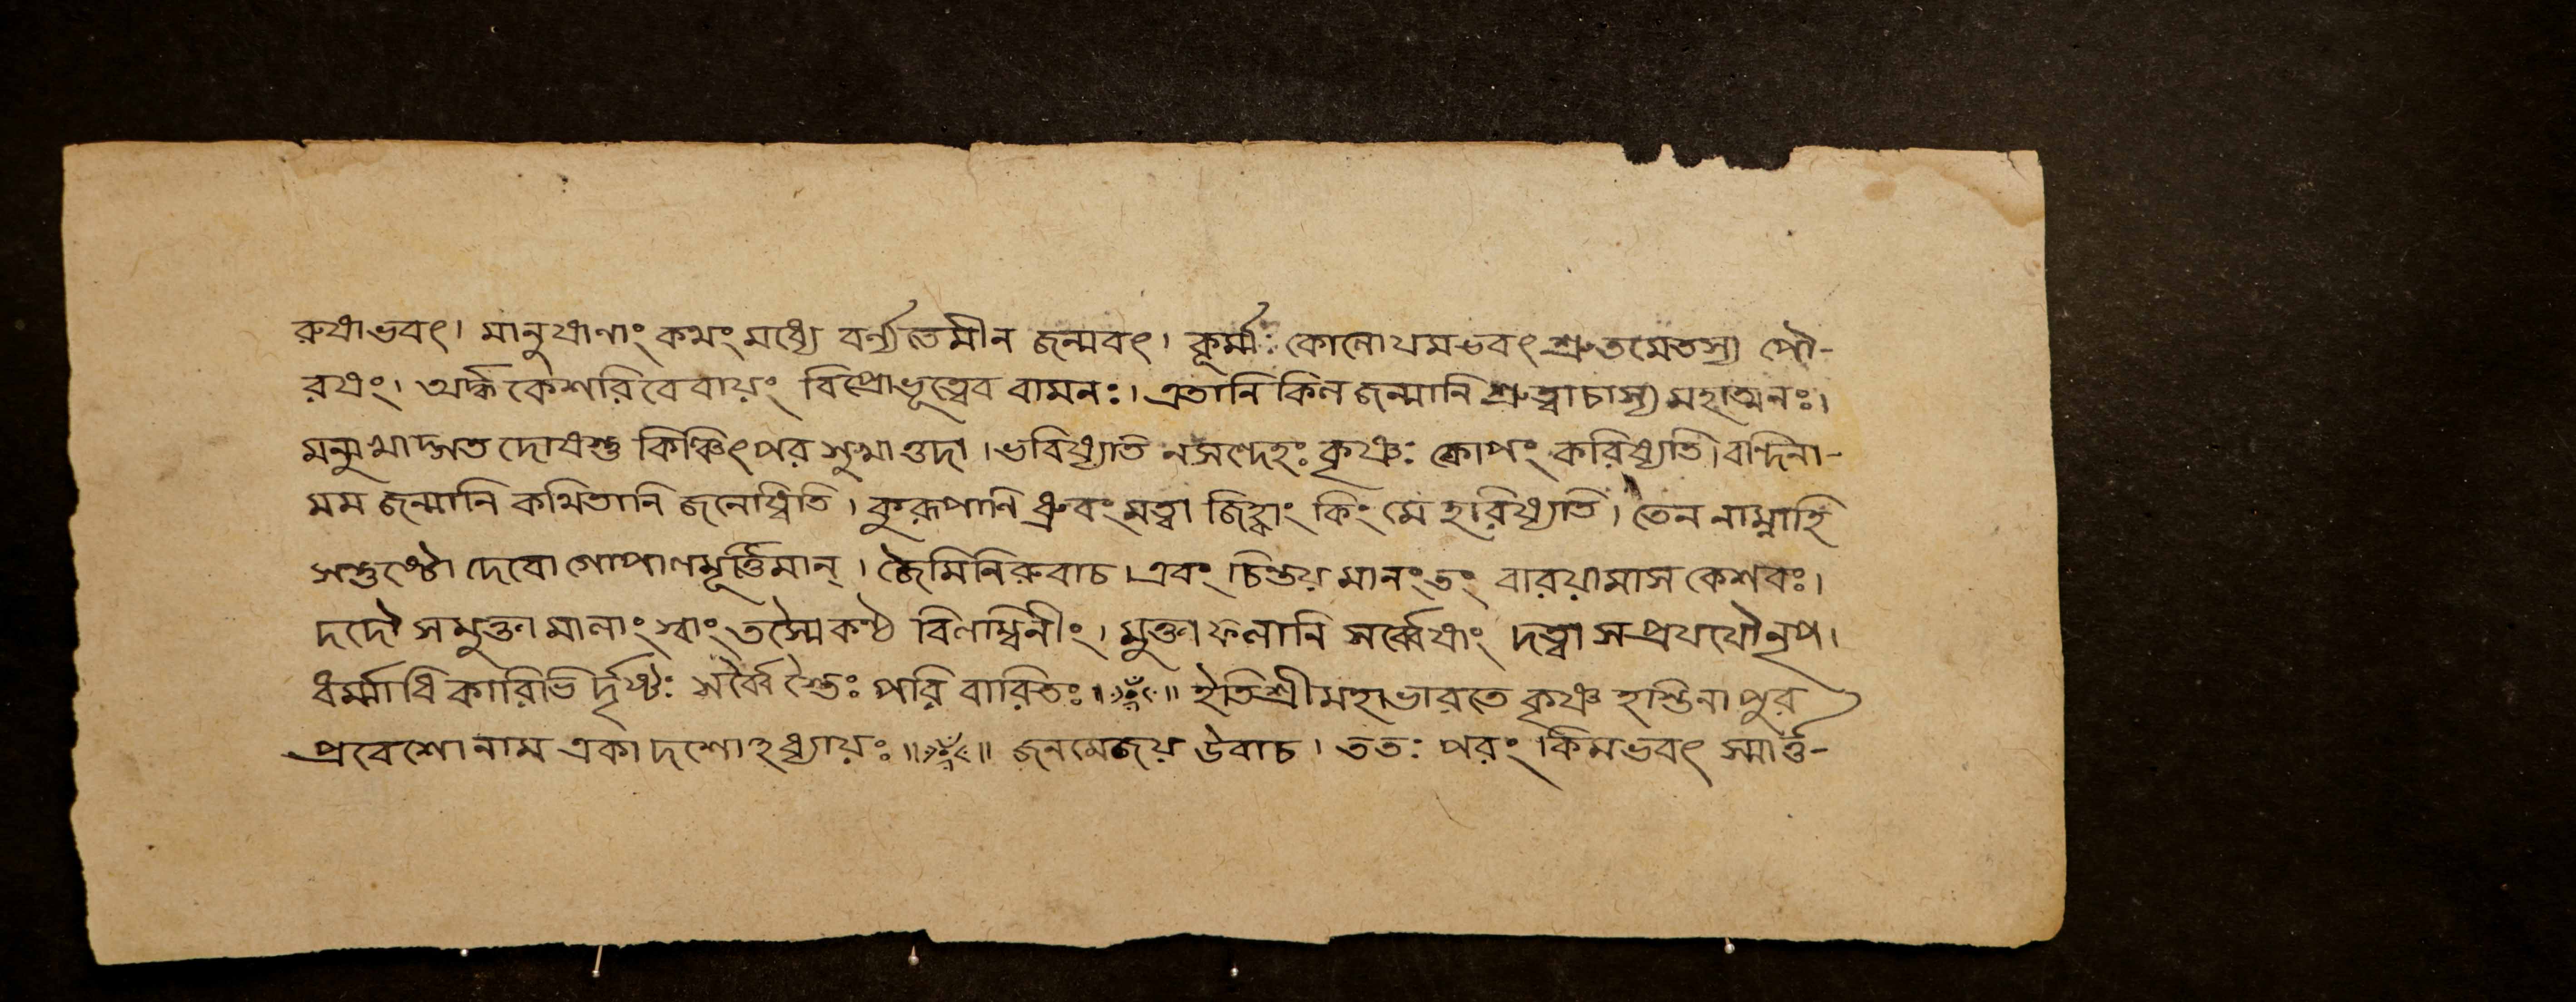 রুষাভবৎ। মানুষাণাং কথং মধ্যে বর্ণ্যতে মীন জন্মবৎ। কূর্ম্মঃ কোনোথমভবৎ শ্রুতমেতস্য পৌ-
রষং। অর্দ্ধ কেশরি বেবায়ং বিপ্রোভূত্বেব বামনঃ। এতানি কিল জন্মানি শ্রুত্বাচাস্য মহাত্মনঃ।
মন্মুখাদ্গত দোষস্তু কিঞ্চিৎপর মুখাওদা। ভবিষ্যতি নসন্দেহঃ কৃষ্ণঃ কোপং করিষ্যতি। বন্দিনা-
মম জন্মানি কথিতানি জনেষ্বিতি। কুরূপাণি ধ্রুবং মত্বা জিহ্বাং কিং মে হরিষ্যতি। তেন নাম্নাহি
সন্তুষ্টো দেবো গোপালমূর্ত্তিমান্। জৈমিনিরুবাচ। এবং চিন্তয় মানংতং বারয়ামাস কেশবঃ।
দদৌ সমুক্তা মালাং স্বাং তস্মৈ কণ্ঠ বিলম্বিনীং। মুক্তাফলানি সর্ব্বেষাং দত্বা সপ্রযযৌনৃপ।
ধর্ম্মাধি কারিভি র্দৃষ্টঃ সর্ব্বৈ স্তৈঃ পরি বারিতঃ॥ ॥ ইতিশ্রীমহাভারতে কৃষ্ণ হস্তিনাপুর
প্রবেশোনাম একাদশোঽধ্যায়ঃ॥ ॥ জনমেজয় উবাচ। ততঃ পরং কিমভবৎ স্মার্ত্ত-